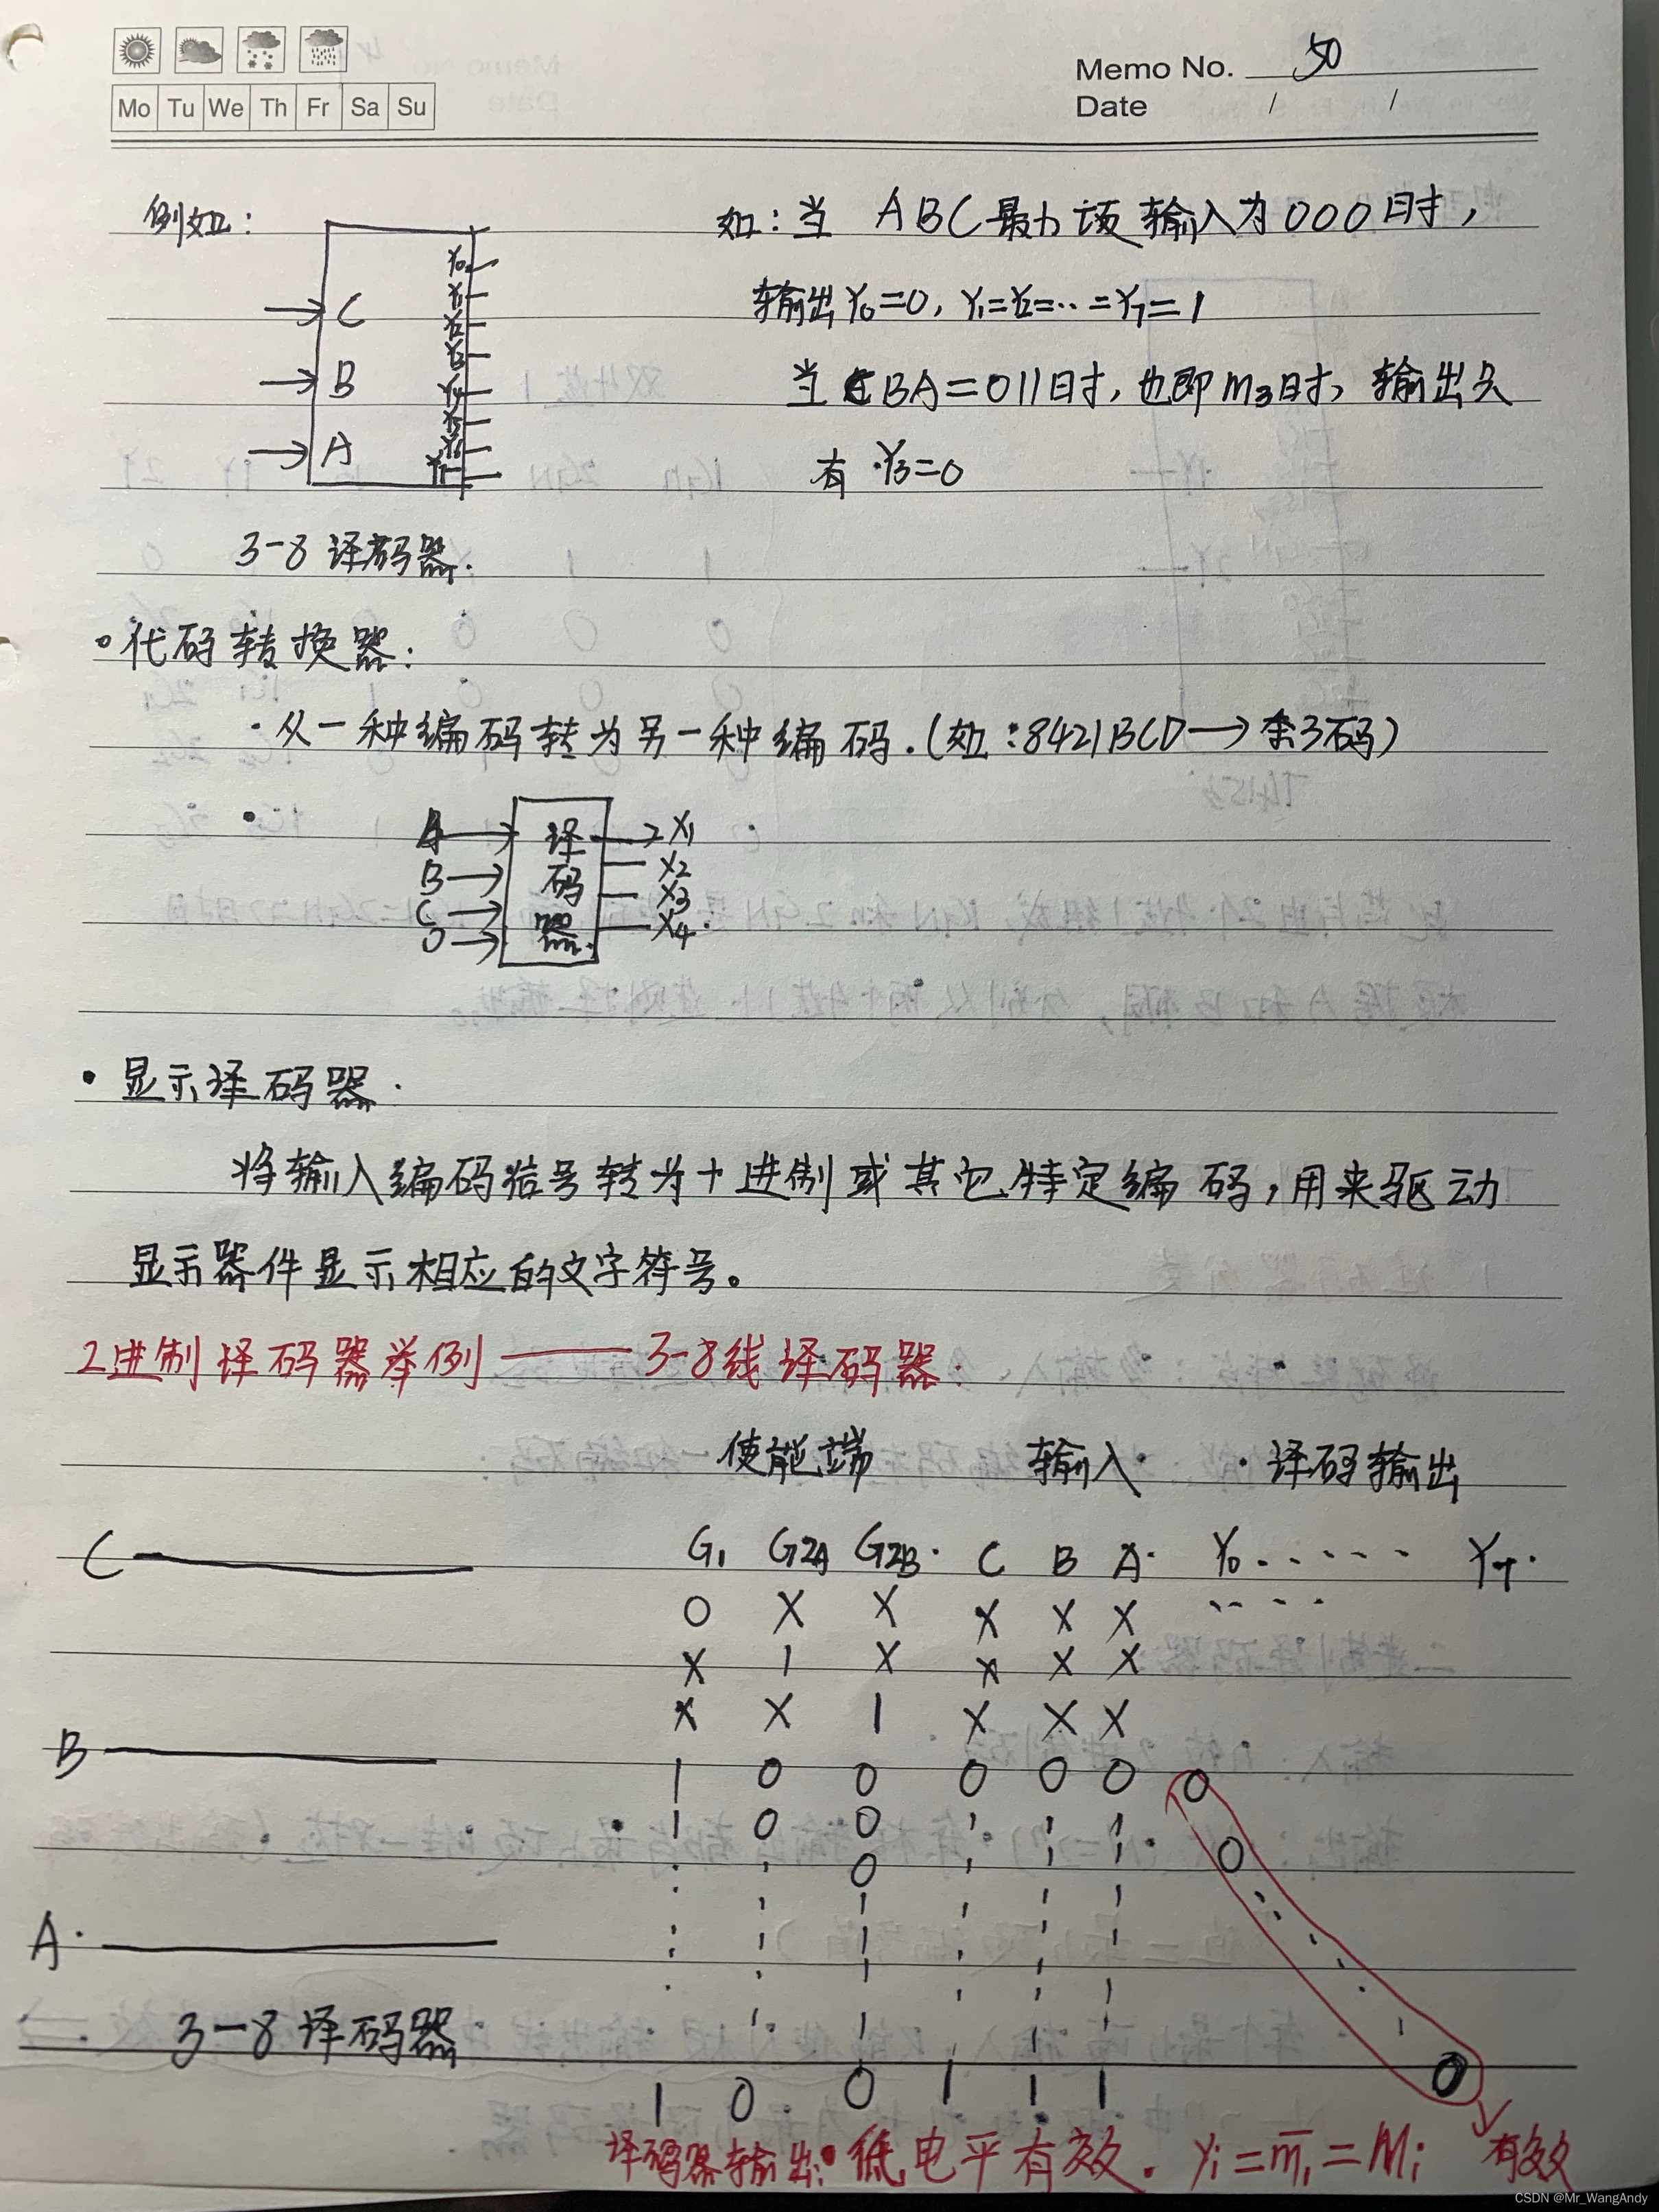 Memo No. 50
Mo Tu We Th Fr Sa Su
Date / /
例如:
C
B
A
Y0
Y1
Y2
Y3
Y4
Y5
Y6
Y7
3-8 译码器.
如:当 ABC最小项输入为000时,
输出Y0=0, Y1=Y2=…=Y7=1
当CBA=011时,也即m3时,输出只
有 Y3=0
代码转换器:
·从一种编码转为另一种编码.(如:8421BCD→余3码)
A
B
C
D
译
码
器.
X1
X2
X3
X4.
·显示译码器.
将输入编码信号转为十进制或其它特定编码,用来驱动
显示器件显示相应的文字符号。
2进制译码器举例——3-8线译码器:
使能端 输入 ·译码输出
G1 G2A G2B C B A Y0 ..... Y7
0 X X X X X ....
X 1 X X X X
X X 1 X X X
1 0 0 0 0 0 0
1 0 0 0
0
1 0 0 1 1 1 0
C
B
A
3-8译码器
译码器输出:低电平有效. yi=m̅i=Mi 有效
CSDN @Mr_WangAndy